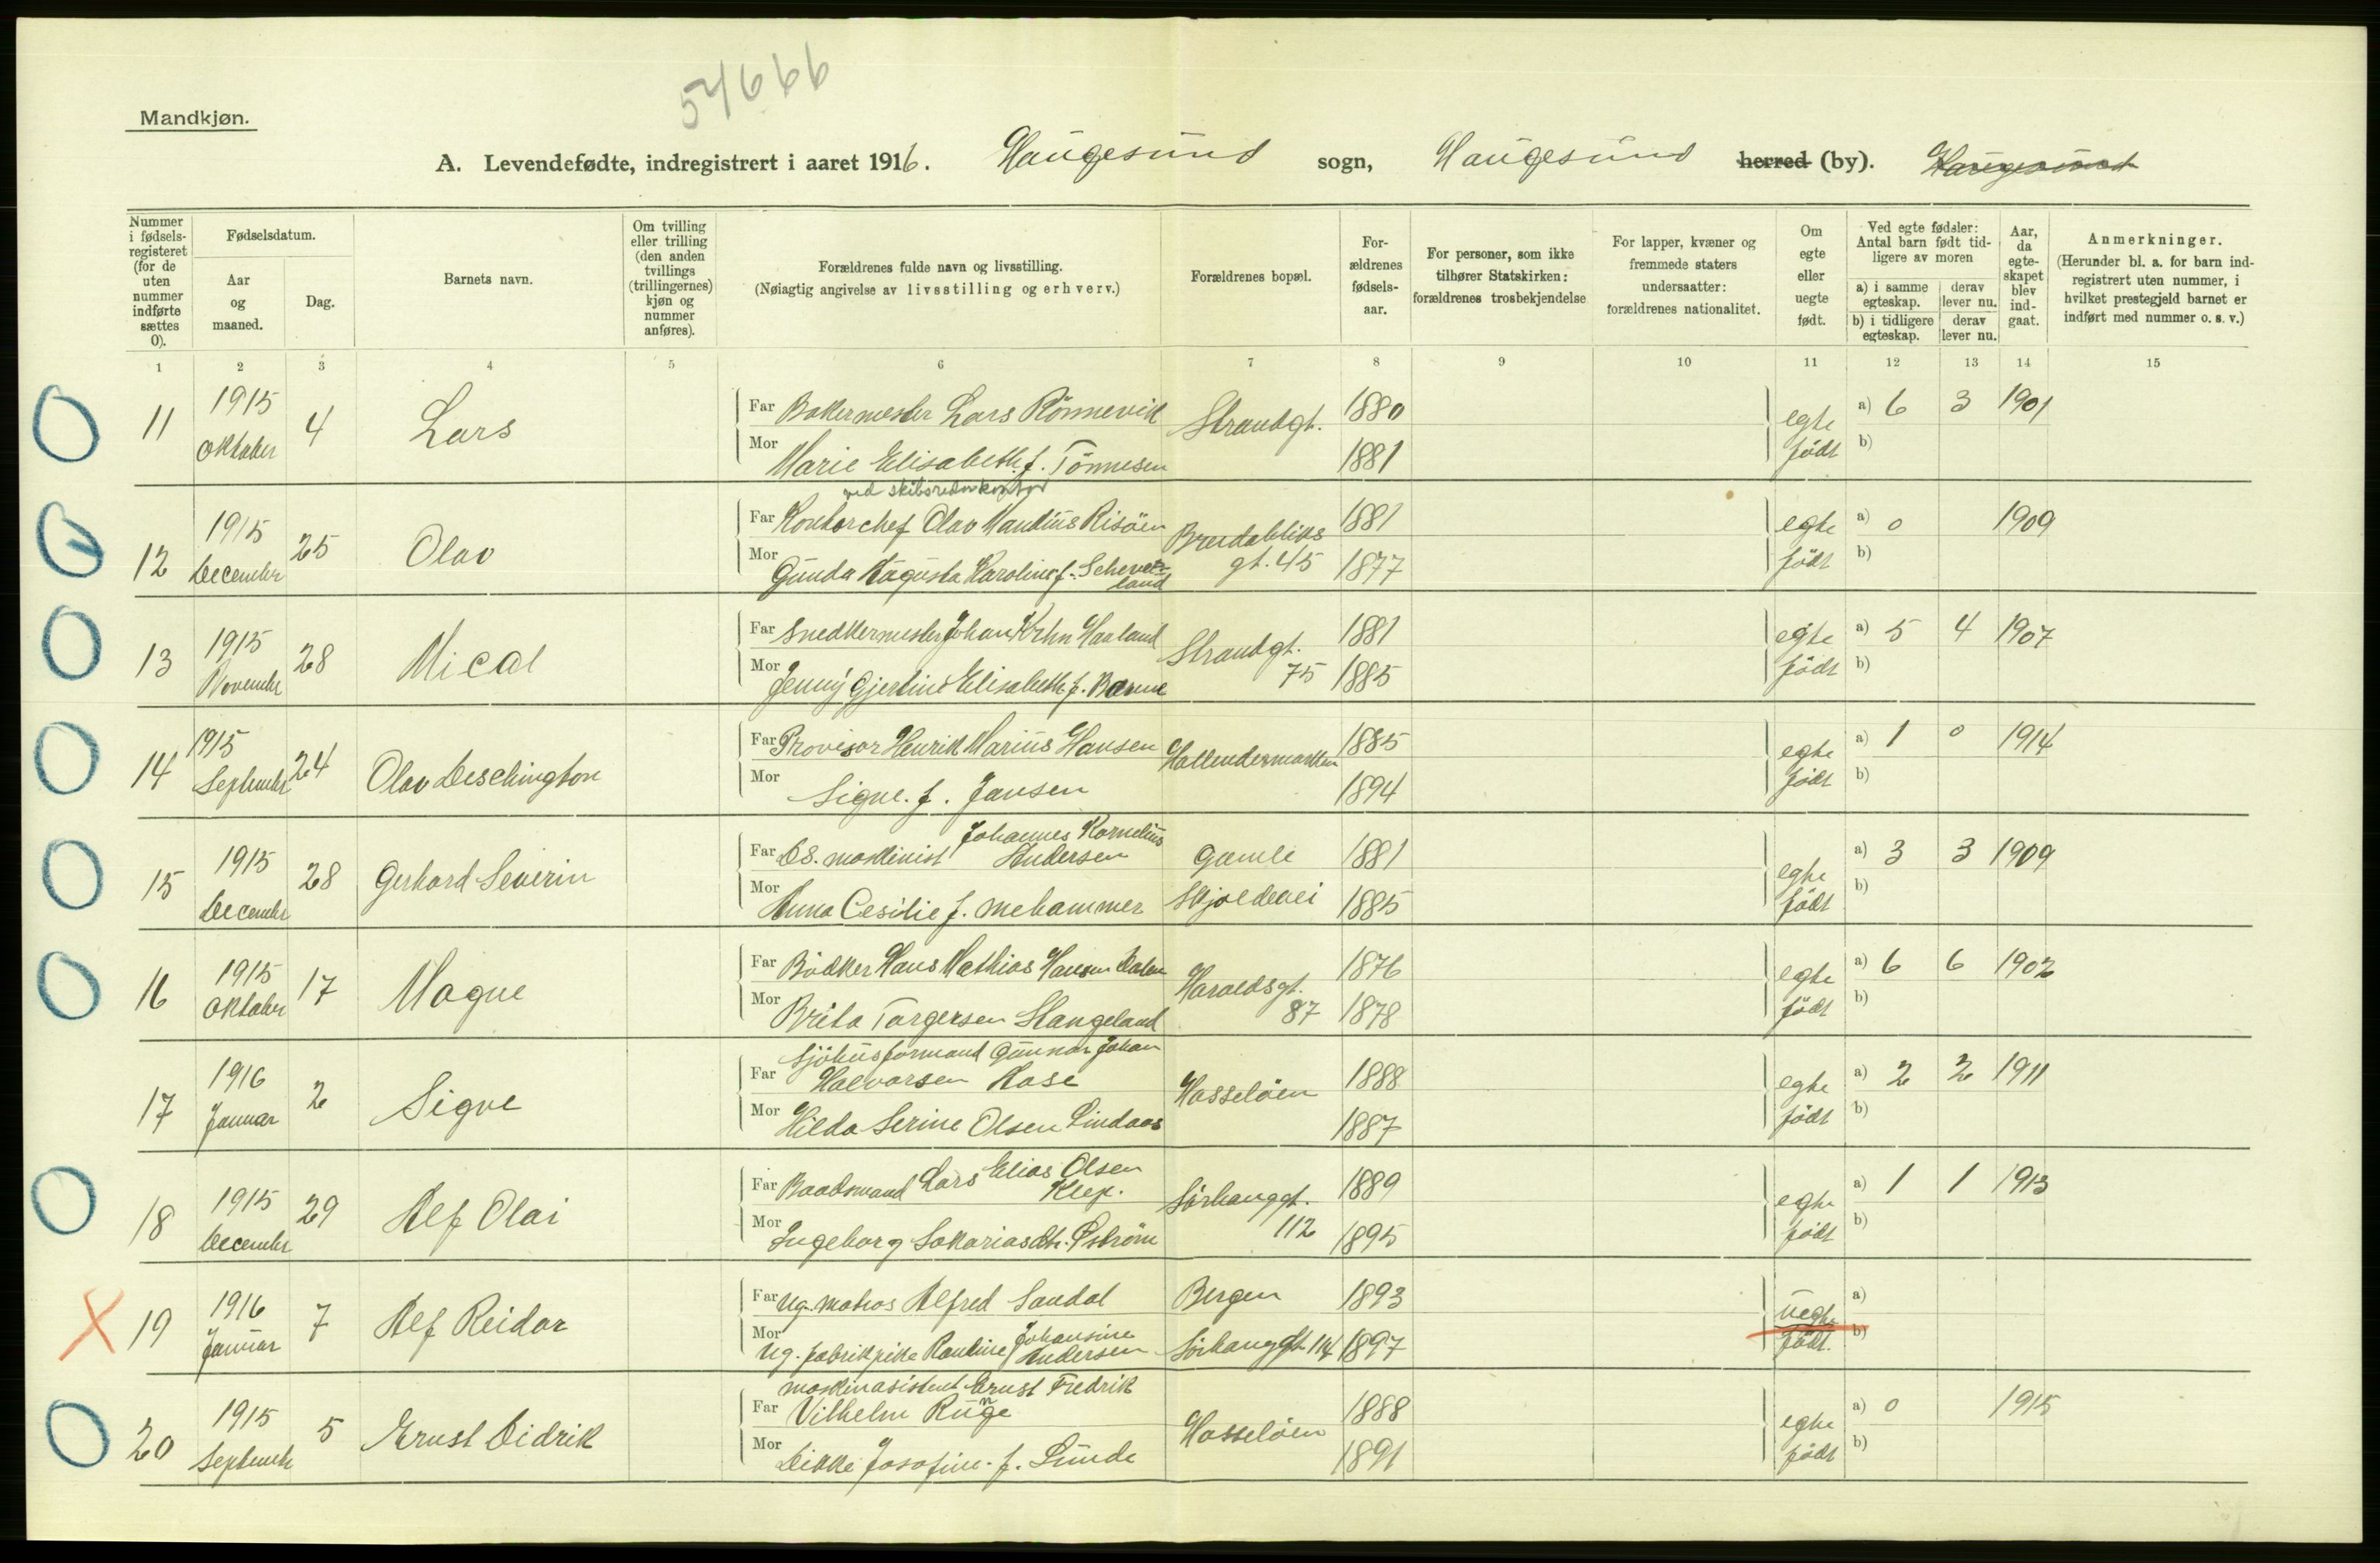 54666
Mandkjøn.
A. Levendefødte, indregistrert i aaret 1916. Haugesund sogn, Haugesund herred (by). Haugesund
Nummer i fødsels-registeret (for de uten nummer indførte sættes 0).
Fødselsdatum.
Aar og maaned.
Dag.
Barnets navn.
Om tvilling eller trilling (den anden tvillings (trillingernes) kjøn og nummer anføres).
Forældrenes fulde navn og livsstilling.
(Nøiagtig angivelse av livsstilling og erhverv.)
Forældrenes bopæl.
For-ældrenes fødsels-aar.
For personer, som ikke tilhører Statskirken: forældrenes trosbekjendelse
For lapper, kvæner og fremmede staters undersaatter: forældrenes nationalitet.
Om egte eller uegte født.
Ved egte fødsler: Antal barn født tid-ligere av moren
a) i samme egteskap. derav lever nu.
b) i tidligere egteskap. derav lever nu.
Aar, da egte-skapet blev ind-gaat.
Anmerkninger.
(Herunder bl. a. for barn ind-registrert uten nummer, i hvilket prestegjeld barnet er indført med nummer o. s. v.)
1 2 3 4 5 6 7 8 9 10 11 12 13 14 15
11 1915 Oktober 4 Lars
Far Bakermester Lars Rönnevik Strandgt. 1880 egte født a) 6 3 1901
Mor Marie Elisabeth f. Tönnesen 1881 b)
ved skibsrederkontor
12 1915 December 25 Olav
Far Kontorchef Olav Mandius Risöen Breidabliks 1881 egte født a) 0 1909
Mor Gunda Augusta Karoline f. land gt. 45 1877 b)
13 1915 November 28 Mical
Far Snedkermester Johan Krhn Haaland Strandgt. 1881 egte født a) 5 4 1907
Mor Jenny Gjertine Elisabeth f. 75 1885 b)
14 1915 September 24 Olav Deschington
Far Provisor Henrik Marius Hansen 1885 egte født a) 1 0 1914
Mor Signe. f. Jansen 1894 b)
Johannes Kornelius
15 1915 December 28 Gerhard Severin
Far DS. maskinist Andersen Gamle 1881 egte født a) 3 3 1909
Mor Anna Cesilie f. Mehammer Skjoldevei 1885 b)
16 1915 Oktober 17 Magne
Far Bödker Hans Mathias Hansen Dalen Haraldsgt. 1876 egte født a) 6 6 1902
Mor Brita Torgersen Stangeland 87 1878 b)
Sjöhusformand Gunnar Johan
17 1916 Januar 2 Sigve
Far Halvorsen Aase Hasseløen 1888 egte født a) 2 2 1911
Mor Hilda Serine Olsen Lindaas 1887 b)
18 1915 December 29 Alf Olai
Far Baadsmand Lars Elias Olsen Klep. Sörhauggt. 1889 egte født a) 1 1 1913
Mor Ingeborg Sakariasdtr. Østrøm 112 1895 b)
19 1916 Januar 7 Alf Reidar
Far Ug. matros Alfred Sandal Bergen 1893 uegte født. a)
Mor Ug. fabrikpike Pauline Johansine Andersen Sörhauggt. 114 1897 b)
maskinasistent Ernst Fredrik
20 1915 September 5 Ernst Didrik
Far Vilhelm Runge Hasseløen 1888 egte født a) 0 1915
Mor Dikke Josofine. f. Lunde 1891 b)